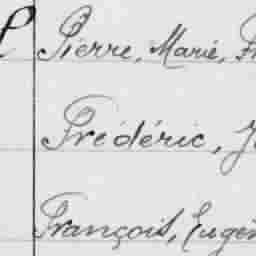 Pierre, Marie,
Frédéric,
François, Eugèn